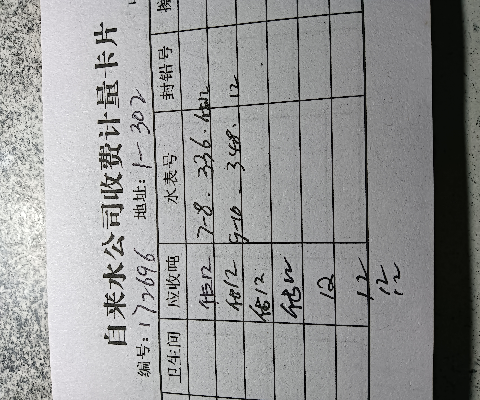 自来水公司收费计量卡片
编号: 172696 地址: 1-302
卫生间 应收吨 水表号 封铅号
估12 7-8.336.估12
估12 9-10-348.12
估12
估12
12
12
12